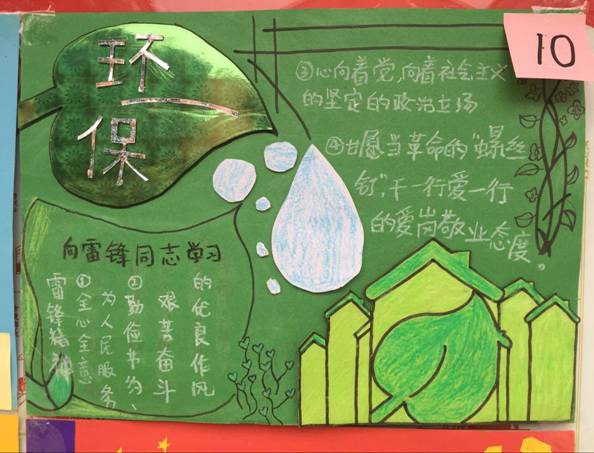 环
保
10
③心向着党,向着社会主义
的坚定的政治立场
④甘愿当革命的"螺丝
钉",干一行爱一行
的爱岗敬业态度。
向雷锋同志学习
雷锋精神
①全心全意
为人民服务
②勤俭节约、
艰苦奋斗
的优良作风